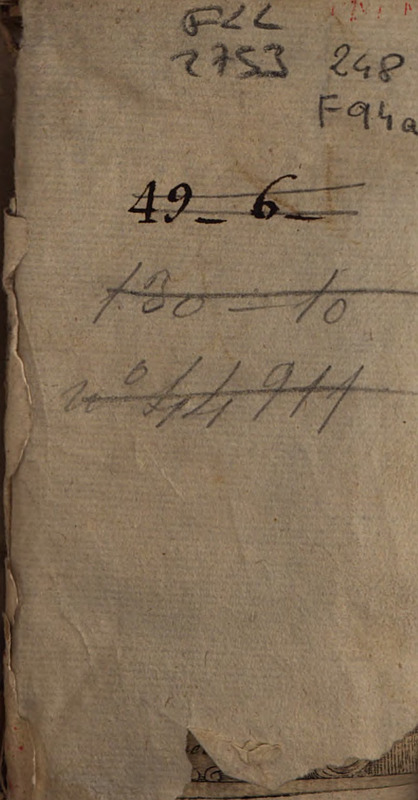 FLL
2753 248
F94a
49_ 6_
130 - 10
nº 44911